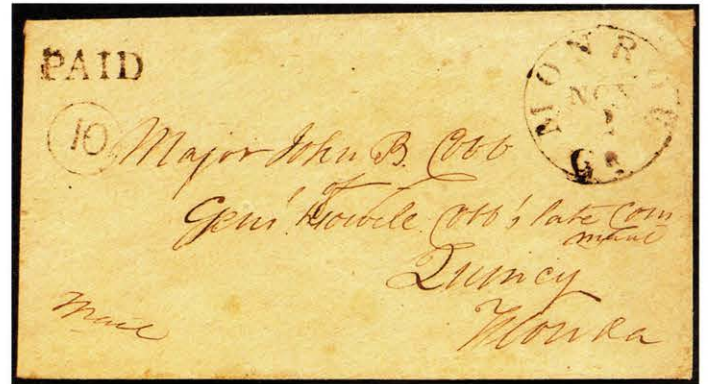 PAID
10
MONROE
NOV
Ga.
Major John B. Cobb
of
Genl Howell Cobb's late Com
mand
Quincy
Florida